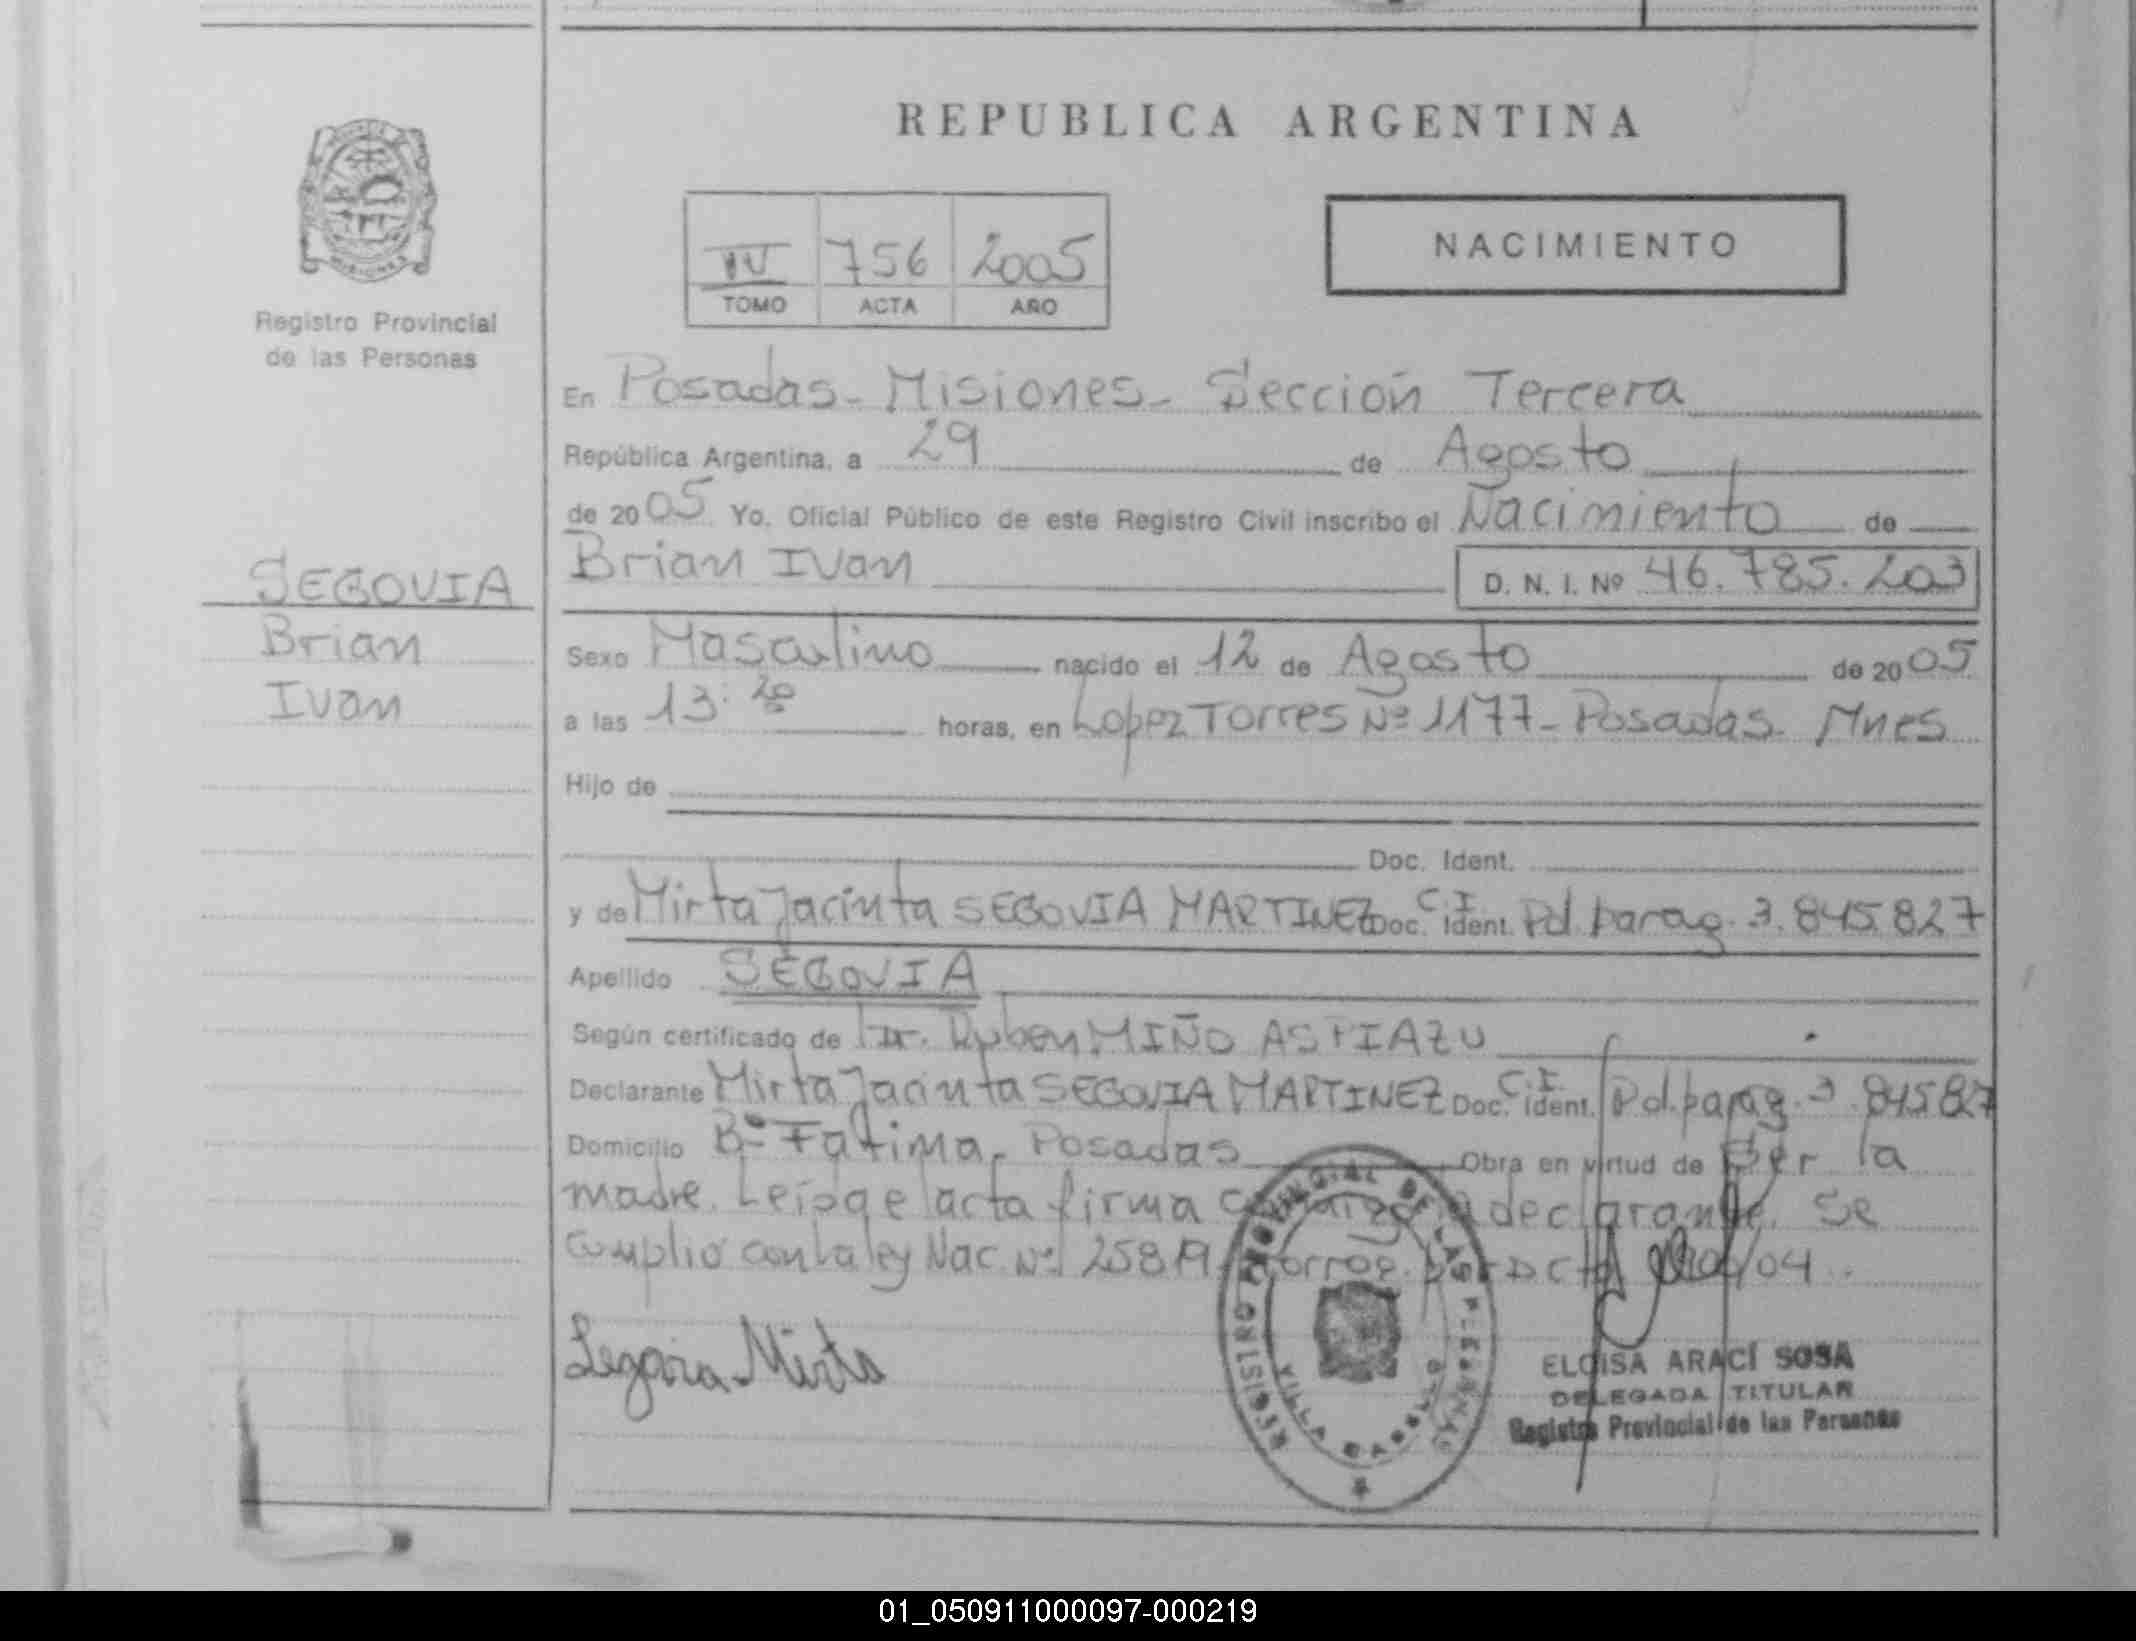 REPUBLICA ARGENTINA
MISIONES
Registro Provincial
de las Personas
NACIMIENTO
IV 756 2005
TOMO ACTA AÑO
En Posadas - Misiones - Sección Tercera
República Argentina, a 29 de Agosto
de 2005 Yo, Oficial Público de este Registro Civil inscribo el Nacimiento de
SEGOVIA
Brian
Ivan
Brian Ivan D. N. I. Nº 46.785.203
Sexo Masculino nacido el 12 de Agosto de 2005
a las 13:20 horas, en Lopez Torres Nº 1177 - Posadas - Mnes
Hijo de
Doc. Ident.
y de Mirta Jacinta SEGOVIA MARTINEZ Doc. C.I. Ident. Pol. parag. 3.845.827
Apellido SEGOVIA
Según certificado de Dr. Ruben MIÑO ASPIAZU
Declarante Mirta Jacinta SEGOVIA MARTINEZ Doc. C.I. Ident. Pol. parag. 3.845827
Domicilio Bº Fatima - Posadas Obra en virtud de Ser la
madre. Leída el acta firma declarante. Se
cumplió con la ley Nac. Nº /04.
Segovia Mirta
REGISTRO PROVINCIAL DE LAS PERSONAS
VILLA CABELLO
ELOISA ARACÍ SOSA
DELEGADA TITULAR
Registro Provincial de las Personas
01_050911000097-000219